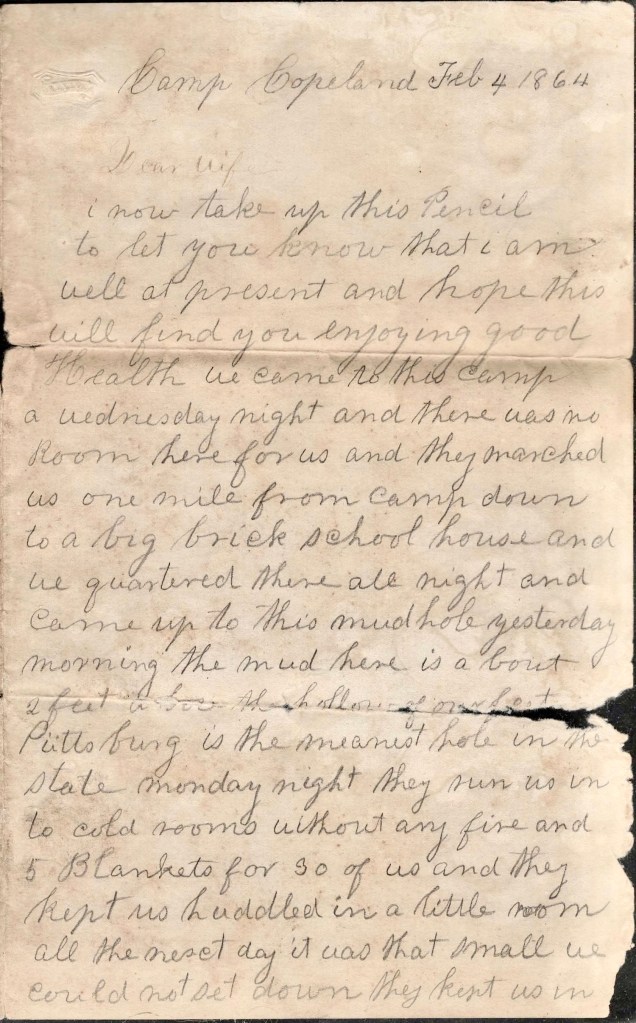 Camp Copeland Feb 4 1864
Dear wife
i now take up this Pencil
to let you know that i am
well at present and hope this
will find you enjoying good
Health we came to this camp
a wednesday night and there was no
Room here for us and they marched
us one mile from camp down
to a big brick school house and
we quartered there all night and
came up to this mudhole yesterday
morning the mud here is a bout
2 feet the hollow of our feet
Pittsburg is the meanest hole in the
state monday night they run us in
to cold rooms without any fire and
5 Blankets for 30 of us and they
kept us huddled in a little room
all the nesct day it was that small we
could not set down they kept us in